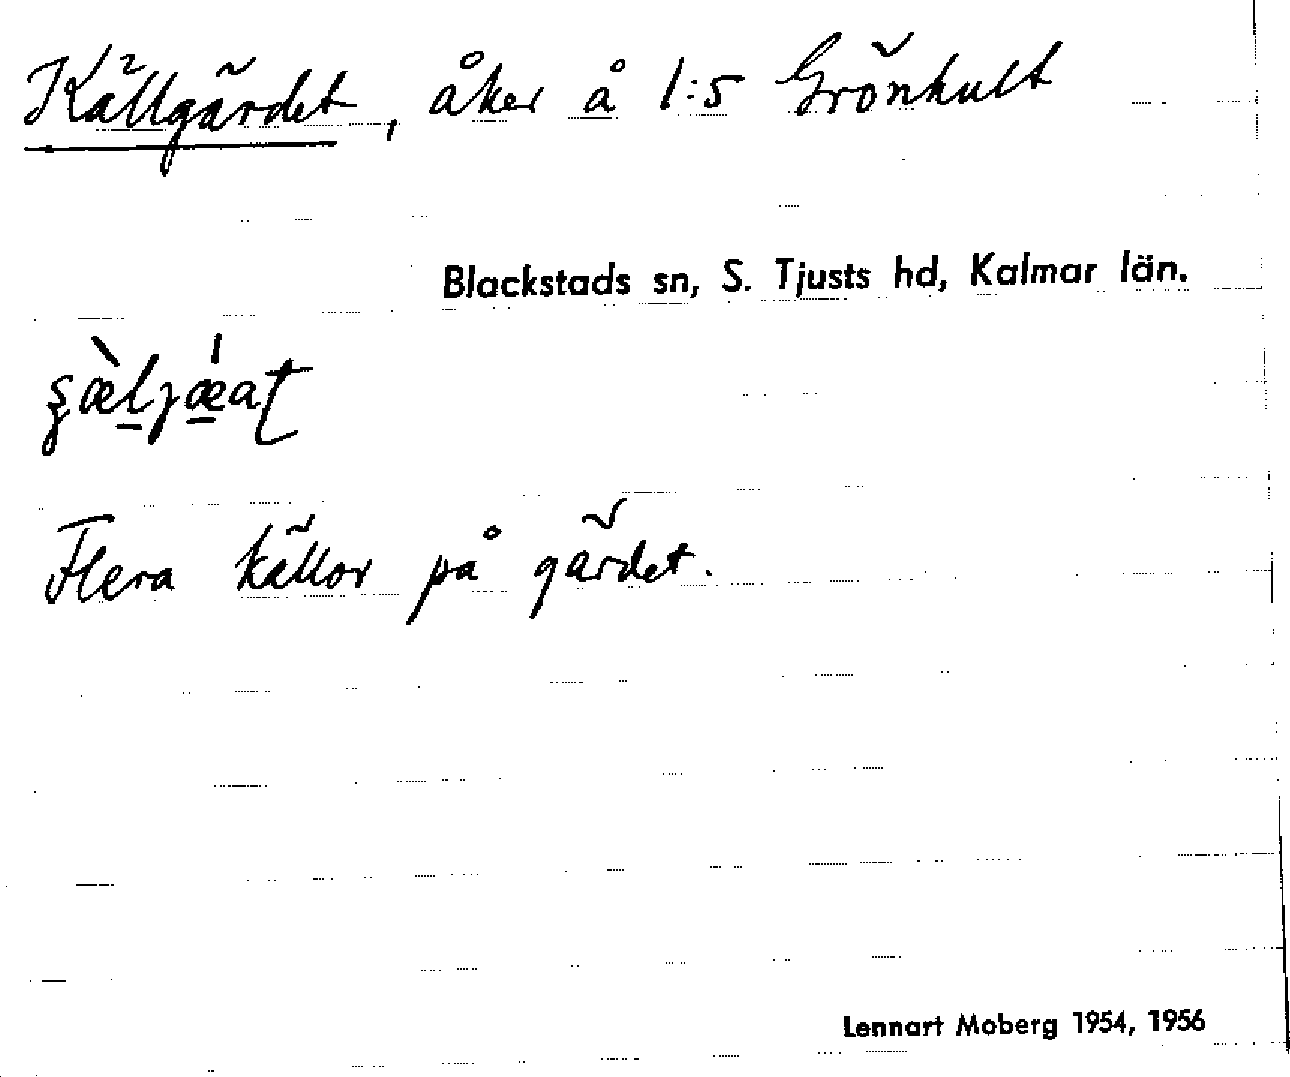 Källgärdet, åker å 1:5 Grönhult
Blackstads sn, S. Tjusts hd, Kalmar län.
Flera källor på gärdet.
Lennart Moberg 1954, 1956